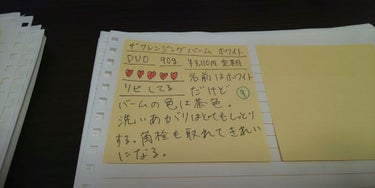 ザ クレンジングバーム ホワイト
DUO 90g ¥3,110円 定期
♥♥♥♥♥ 名前はホワイト
リピしてる だけど ⑨
バームの色は茶色。
洗いあがりはとてもしっとり
する。角栓も取れてきれい
になる。